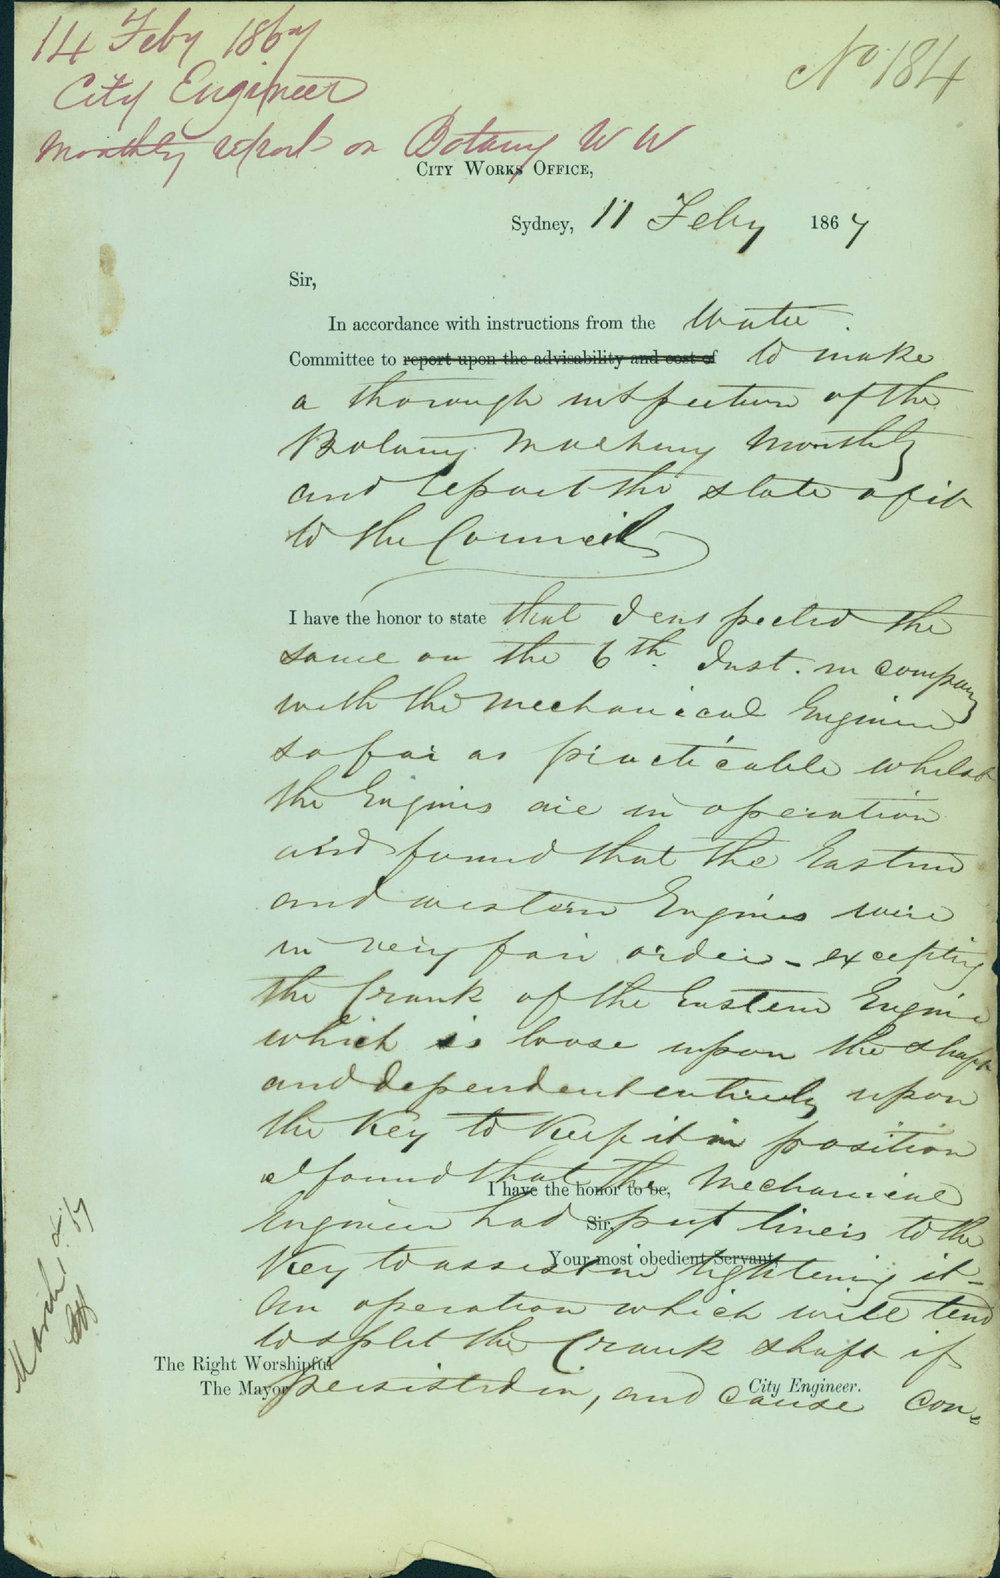 14 Feby 1867
City Engineer
Monthly report on Botany W W
No 184
City Works Office,
Sydney, 11 Feby 1867
Sir,
In accordance with instructions from the Water
Committee to report upon the advisability and cost of to make
a thorough inspection of the
Botany Machinery Monthly
and report the state of it
to the Council
I have the honor to state that I inspected the
same on the 6th Inst. in company
with the Mechanical Engineer
so far as practicable whilst
the Engines are in operation
and found that the Eastern
and western Engines were
in very fair order - excepting
the Crank of the Eastern Engine
which is loose upon the shaft
and dependent entirely upon
the Key to Keep it in position
I found that the Mechanical
I have the honor to be,
Engineer had put liners to the
Sir,
Key to assist in tightening it -
Your most obedient Servant,
An operation which will tend
to split the Crank shaft if
The Right Worshipful
persisted in, and cause con-
The Mayor
City Engineer.
March, 67